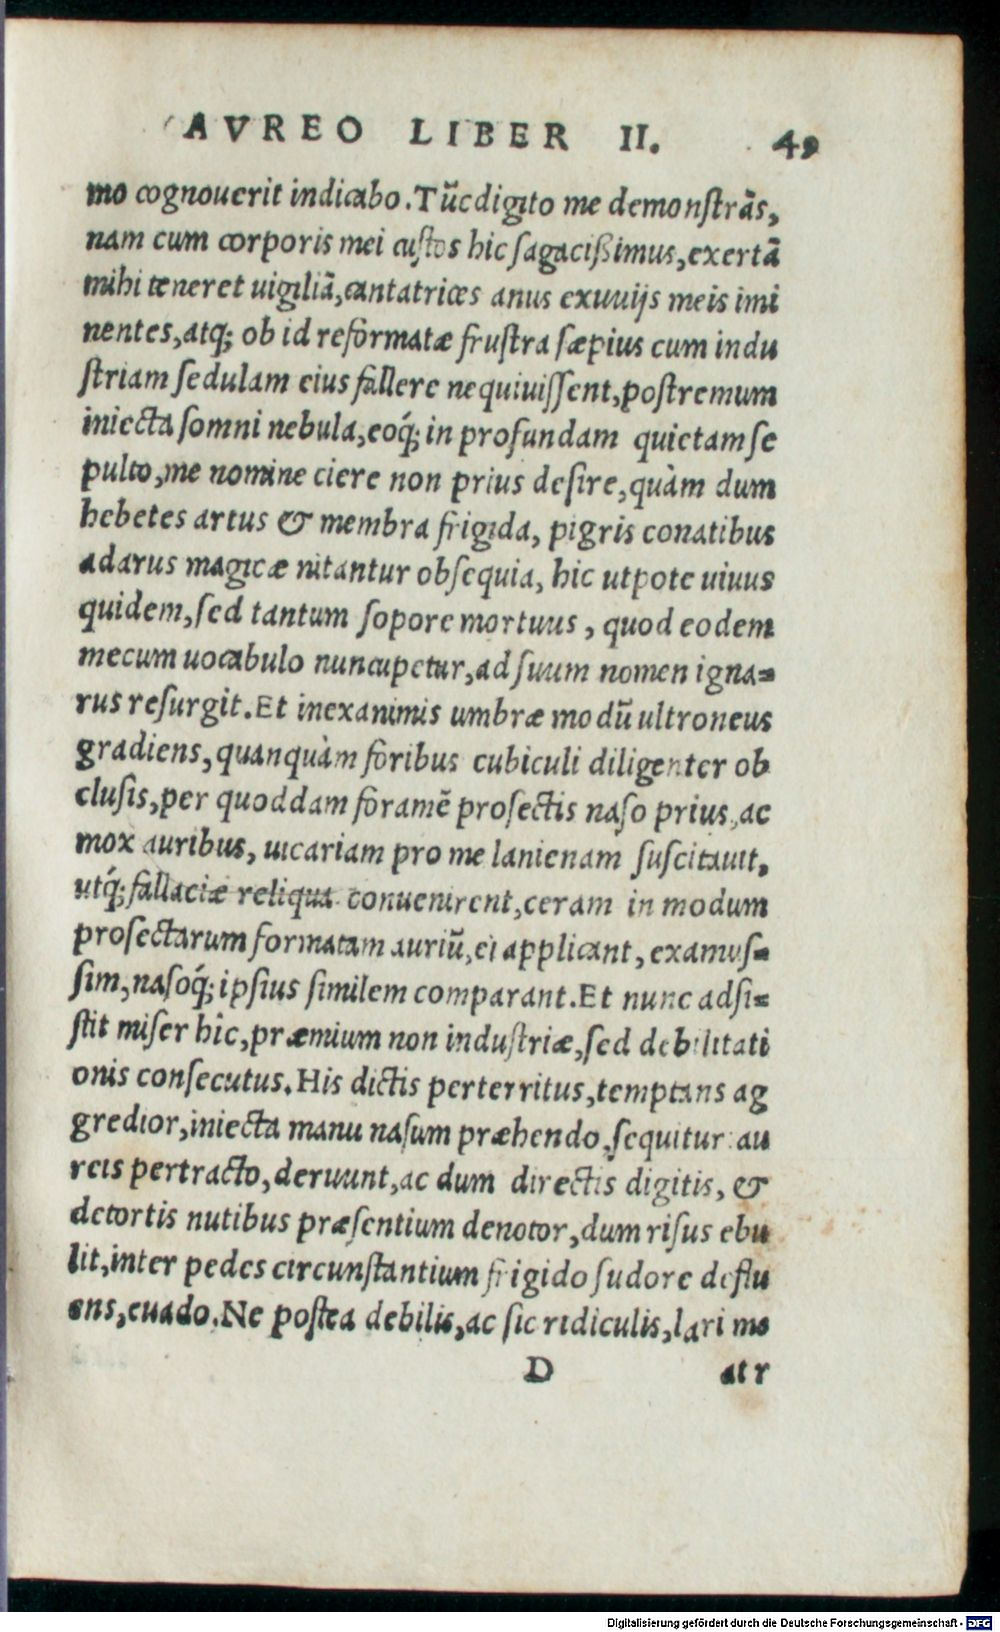 AVREO LIBER II. 49
mo cognouerit indicabo. Tūc digito me demonſtrās,
nam cum corporis mei cuſtos hic ſagaciſsimus, exertā
mihi teneret uigiliā, cantatrices anus exuuijs meis imi
nentes, atq; ob id reformatæ fruſtra ſæpius cum indu
ſtriam ſedulam eius fallere nequiuiſſent, poſtremum
iniecta ſomni nebula, eoq́; in profundam quietam ſe
pulto, me nomine ciere non prius deſire, quàm dum
hebetes artus & membra frigida, pigris conatibus
adarus magicæ nitantur obſequia, hic utpote uiuus
quidem, ſed tantum ſopore mortuus, quod eodem
mecum uocabulo nuncupetur, ad ſuum nomen igna-
rus reſurgit. Et inexanimis umbræ modū ultroneus
gradiens, quanquàm foribus cubiculi diligenter ob
cluſis, per quoddam foramē proſectis naſo prius, ac
mox auribus, uicariam pro me lanienam ſuſcitauit,
utq́; fallaciæ reliqua conuenirent, ceram in modum
proſectarum formatam auriū, ei applicant, examuſ-
ſim, naſoq́; ipſius ſimilem comparant. Et nunc adſi-
ſtit miſer hîc, præmium non induſtriæ, ſed debilitati
onis conſecutus. His dictis perterritus, temptans ag
gredior, iniecta manu naſum præhendo, ſequitur: au
reis pertracto, deruunt, ac dum directis digitis, &
detortis nutibus præſentium denotor, dum riſus ebu
lit, inter pedes circunſtantium frigido ſudore deflu
ens, euado. Ne poſtea debilis, ac ſic ridiculis, lari me
D atr
Digitalisierung gefördert durch die Deutsche Forschungsgemeinschaft - DFG